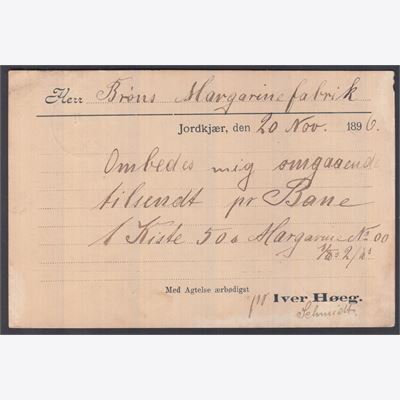 Herr Brøns Margarinefabrik
Jordkjær, den 20 Nov. 1896.
Ombedes mig omgaaende
tilsendt pr Bane
1 Kiste 50 a Margarine No 00
Med Agtelse ærbødigst
pr Iver Høeg.
Schmidt